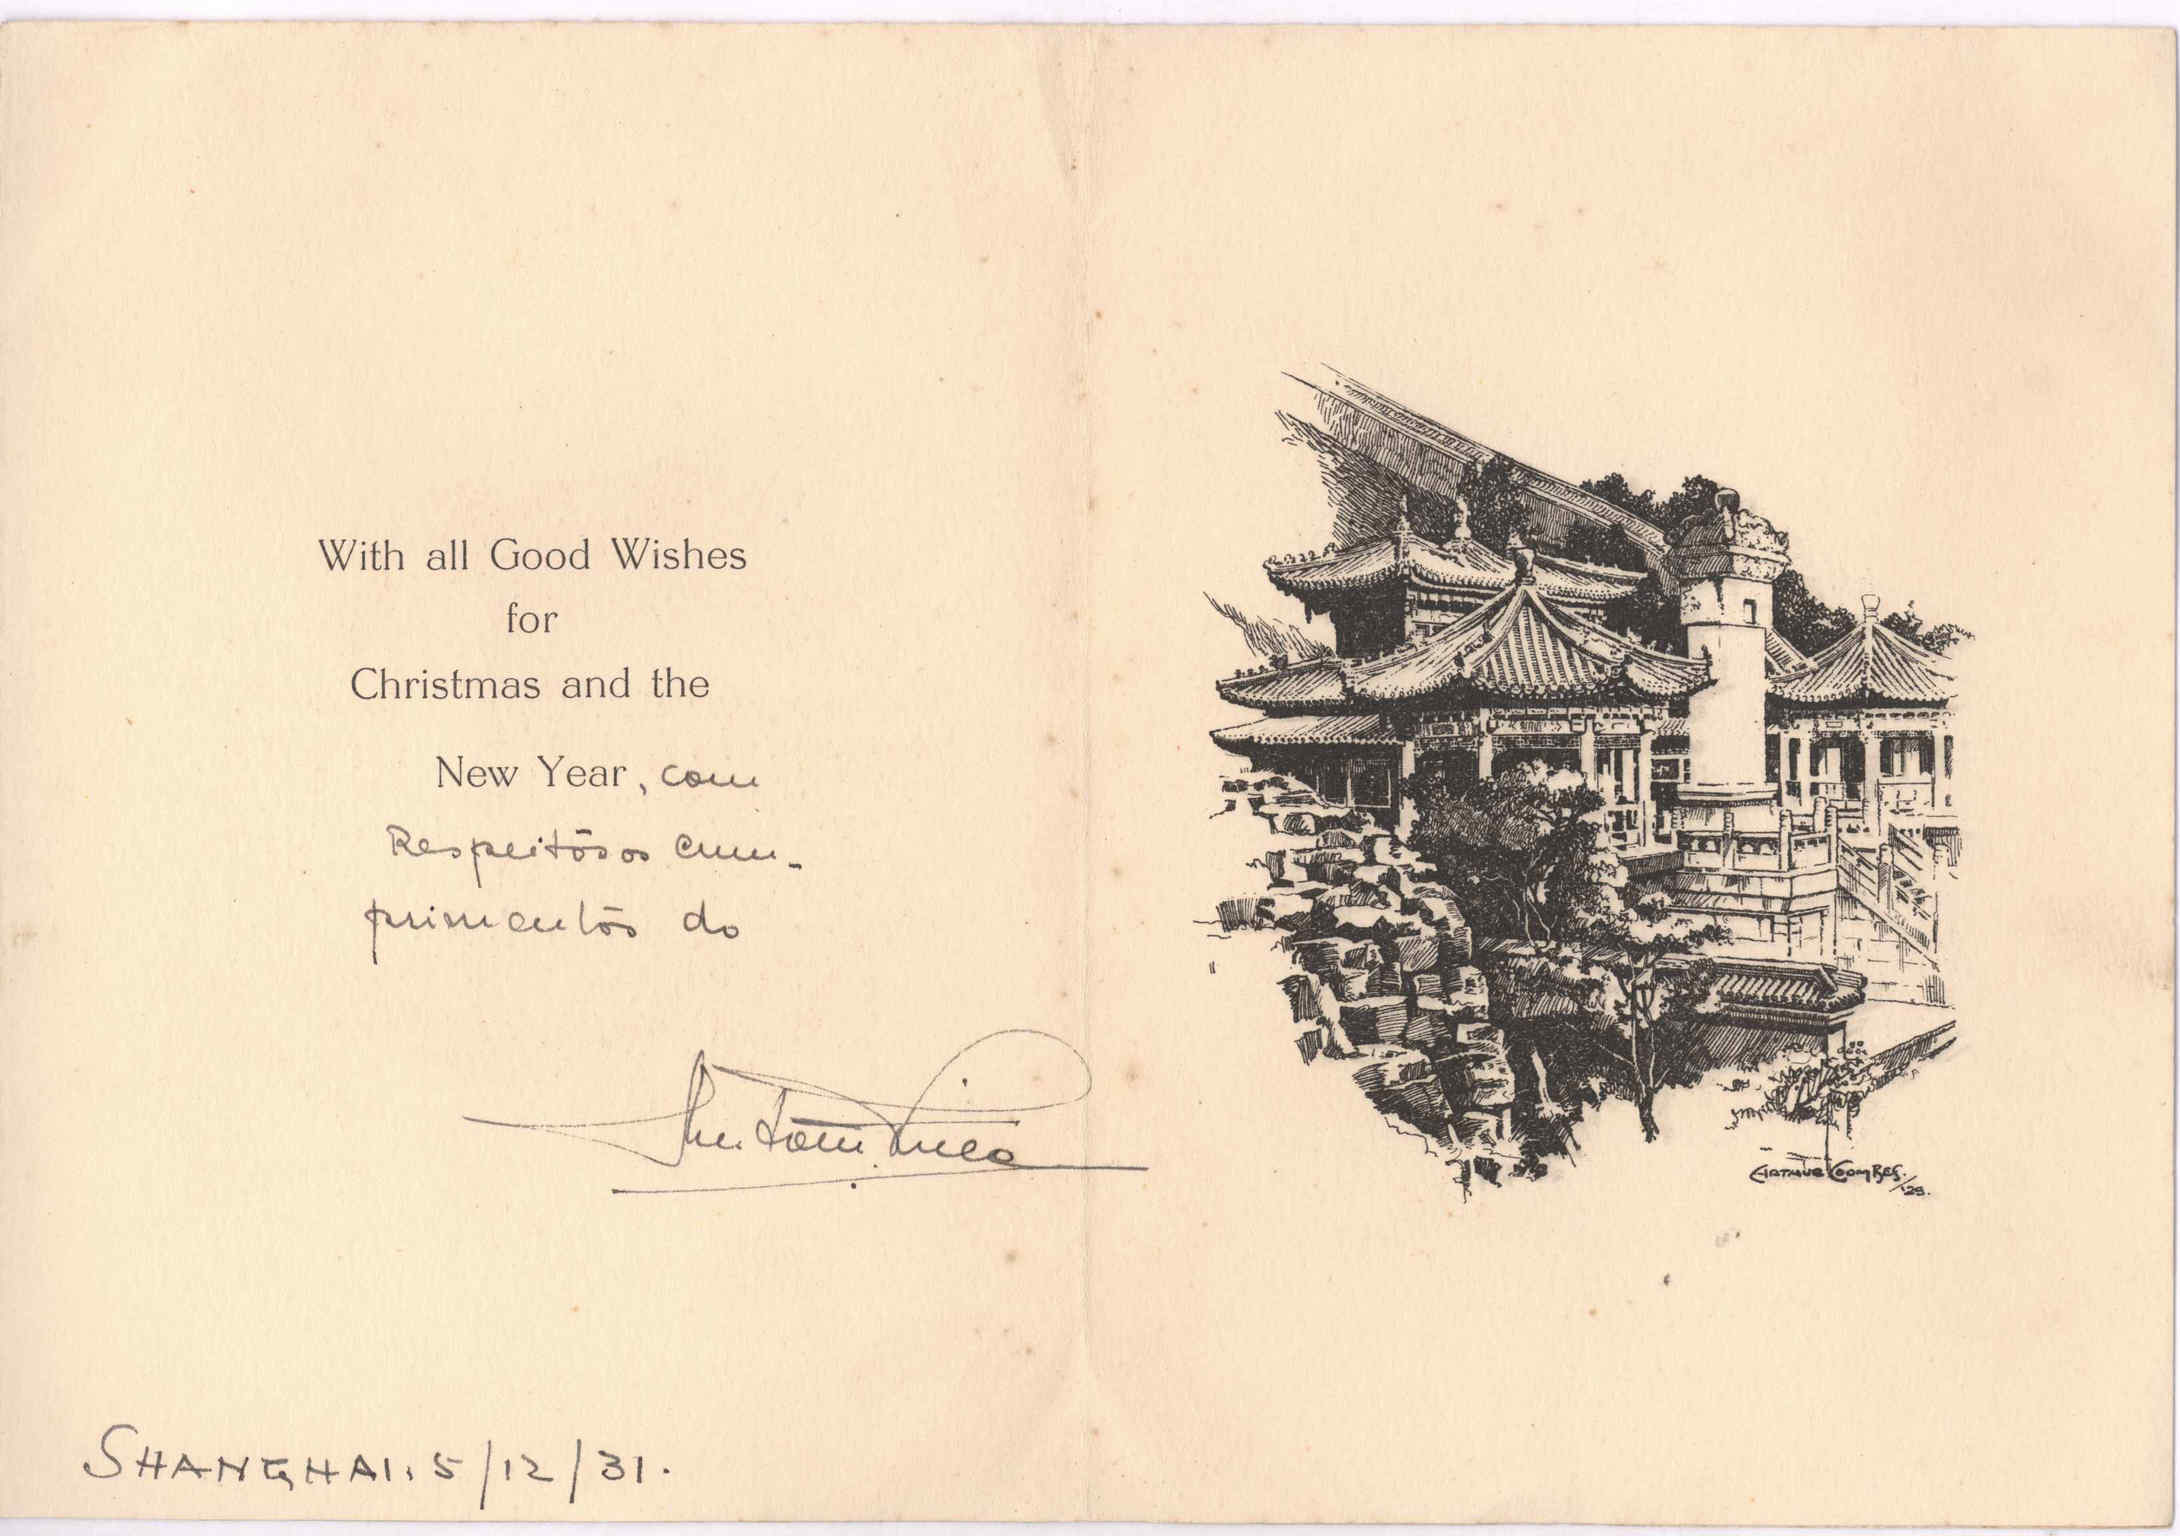 With all Good Wishes
for
Christmas and the
New Year, com
Respeitosos cum-
primentos do
SHANGHAI. 5/12/31.
ARTHUR COOMBES.
/'29.